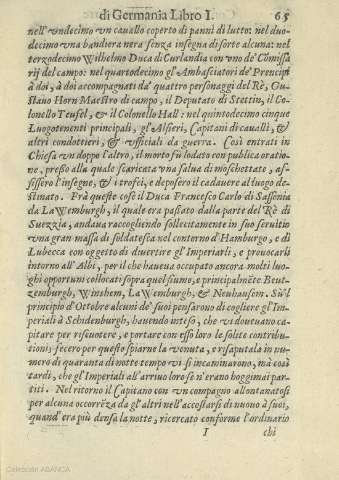 di Germania Libro I. 65
nell'vndecimo vn cauallo coperto di panni di lutto: nel duo-
decimo vna bandiera nera senza insegna di sorte alcuna: nel
terzodecimo Wilhelmo Duca di Curlandia con vno de' Cõmissa
rij del campo: nel quartodecimo gl'Ambasciatori de' Prencipi
à doi, à doi accompagnati da' quattro personaggi del Rè, Gu-
stauo Horn Maestro di campo, il Deputato di Stettin, il Co-
lonello Teufel, & il Colonello Hall: nel quintodecimo cinque
Luogotenenti principali, gl'Alfieri, Capitani di caualli, &
altri condottieri, & vfficiali da guerra. Così entrati in
Chiesa vn doppo l'altro, il morto fù lodato con publica oratio
ne, presso alla quale scaricata vna salua di moschettate, af-
fissero l'insegne, & i trofei, e deposero il cadauere al luogo de-
stinato. Frà queste cose il Duca Francesco Carlo di Sassonia
da LaWemburgh, il quale era passato dalla parte del Rè di
Suezzia, andaua raccogliendo sollecitamente in suo seruitio
vna gran massa di soldatesca nel contorno d'Hamburgo, e di
Lubecca con oggetto di diuertire gl'Imperiarli, e prouocarli
intorno all'Albi, per il che haueua occupato ancora molti luo-
ghi opportuni collocati sopra quel fiume, e principalmẽte Beut-
zemburgh, Winshem, LaWemburgh, & Neuhausem. Sù'l
principio d'Ottobre alcuni de' suoi pensarono di cogliere gl'Im-
periali à Schidenburgh, hauendo inteso, che vi doueuano ca-
pitare per riscuotere, e portare con esso loro le solite contribu-
tioni; fecero per questo spiarne la venuta, e risaputala in nu-
mero di quaranta di notte tempo vi si incaminarono, mà così
tardi, che gl'Imperiali all'arriuo loro se n'erano hoggimai par-
titi. Nel ritorno il Capitano con vn compagno allontanatosi
per alcuna occorrẽza da gl'altri nell'accostarsi di nuouo à suoi,
quand'era più densa la notte, ricercato conforme l'ordinario
I chi
Colección ABANCA